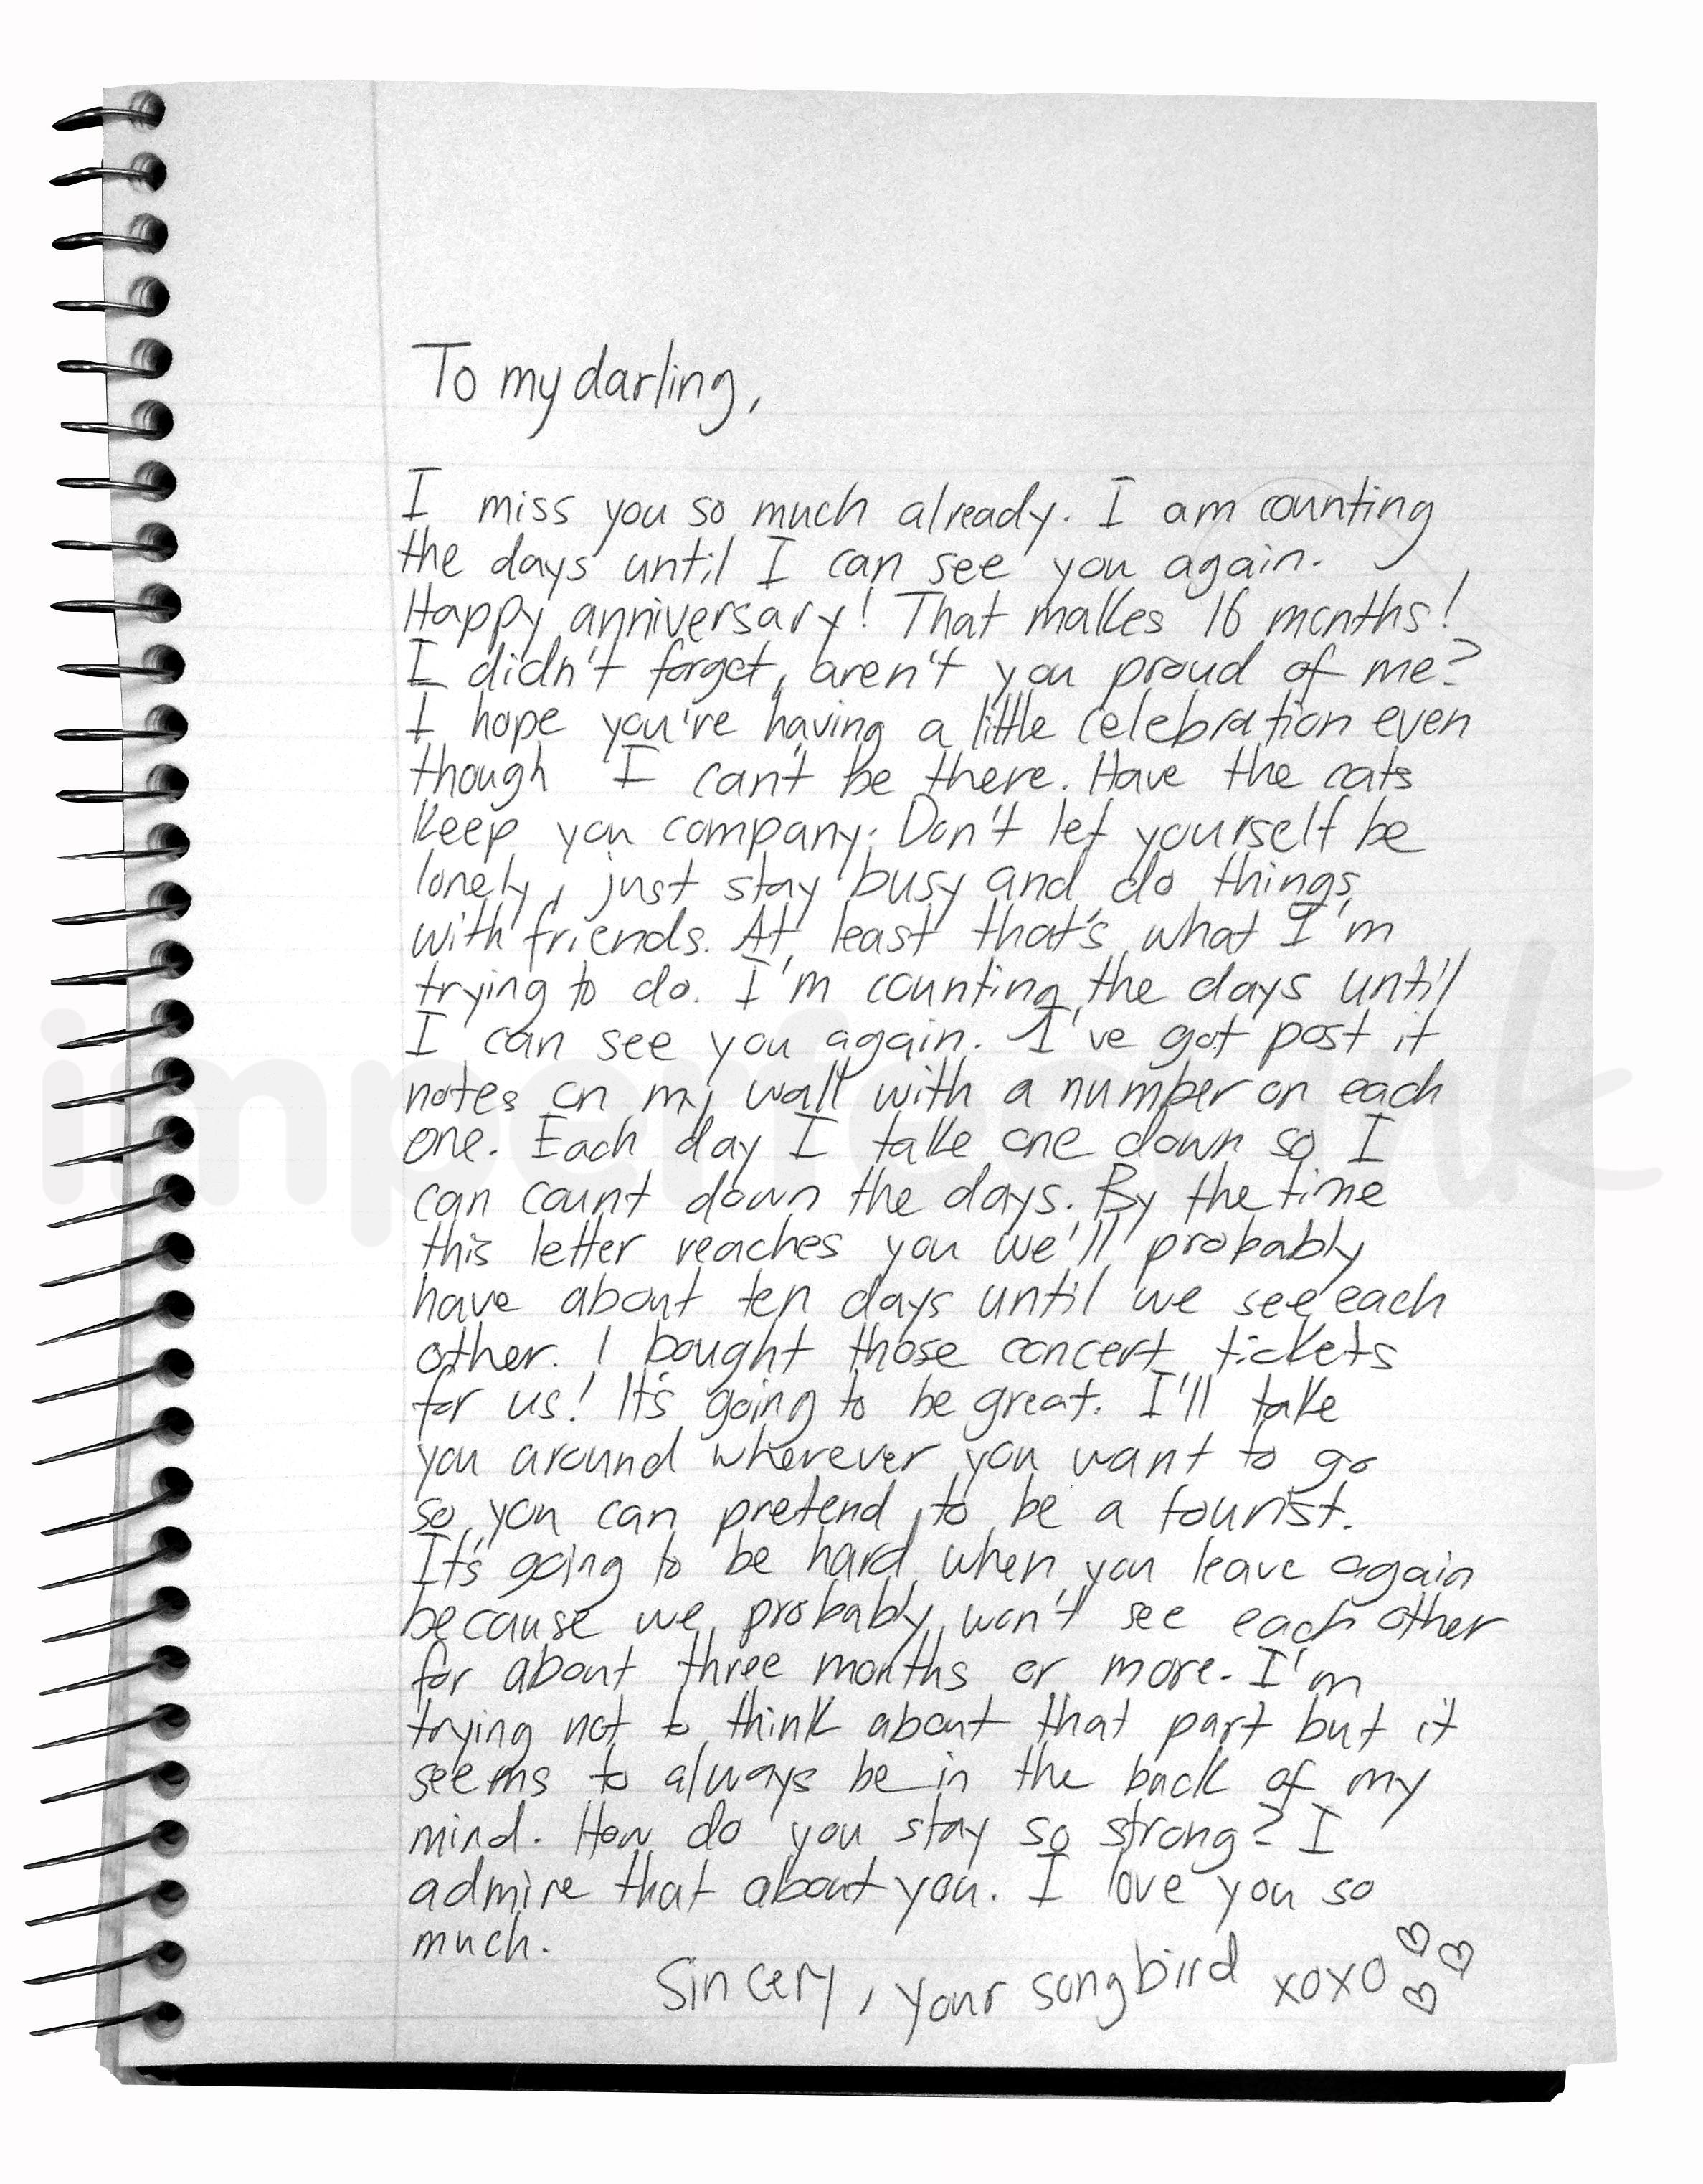 To my darling,
I miss you so much already. I am counting
the days until I can see you again.
Happy anniversary! That makes 16 months!
I didn't forget, aren't you proud of me?
I hope you're having a little celebration even
though I can't be there. Have the cats
keep you company. Don't let yourself be
lonely, just stay busy and do things
with friends. At least that's what I'm
trying to do. I'm counting the days until
I can see you again. I've got post it
notes on my wall with a number on each
one. Each day I take one down so I
can count down the days. By the time
this letter reaches you we'll probably
have about ten days until we see each
other. I bought those concert tickets
for us! It's going to be great. I'll take
you around wherever you want to go
so you can pretend to be a tourist.
It's going to be hard when you leave again
because we probably won't see each other
for about three months or more. I'm
trying not to think about that part but it
seems to always be in the back of my
mind. How do you stay so strong? I
admire that about you. I love you so
much.
Sincery, your songbird xoxo